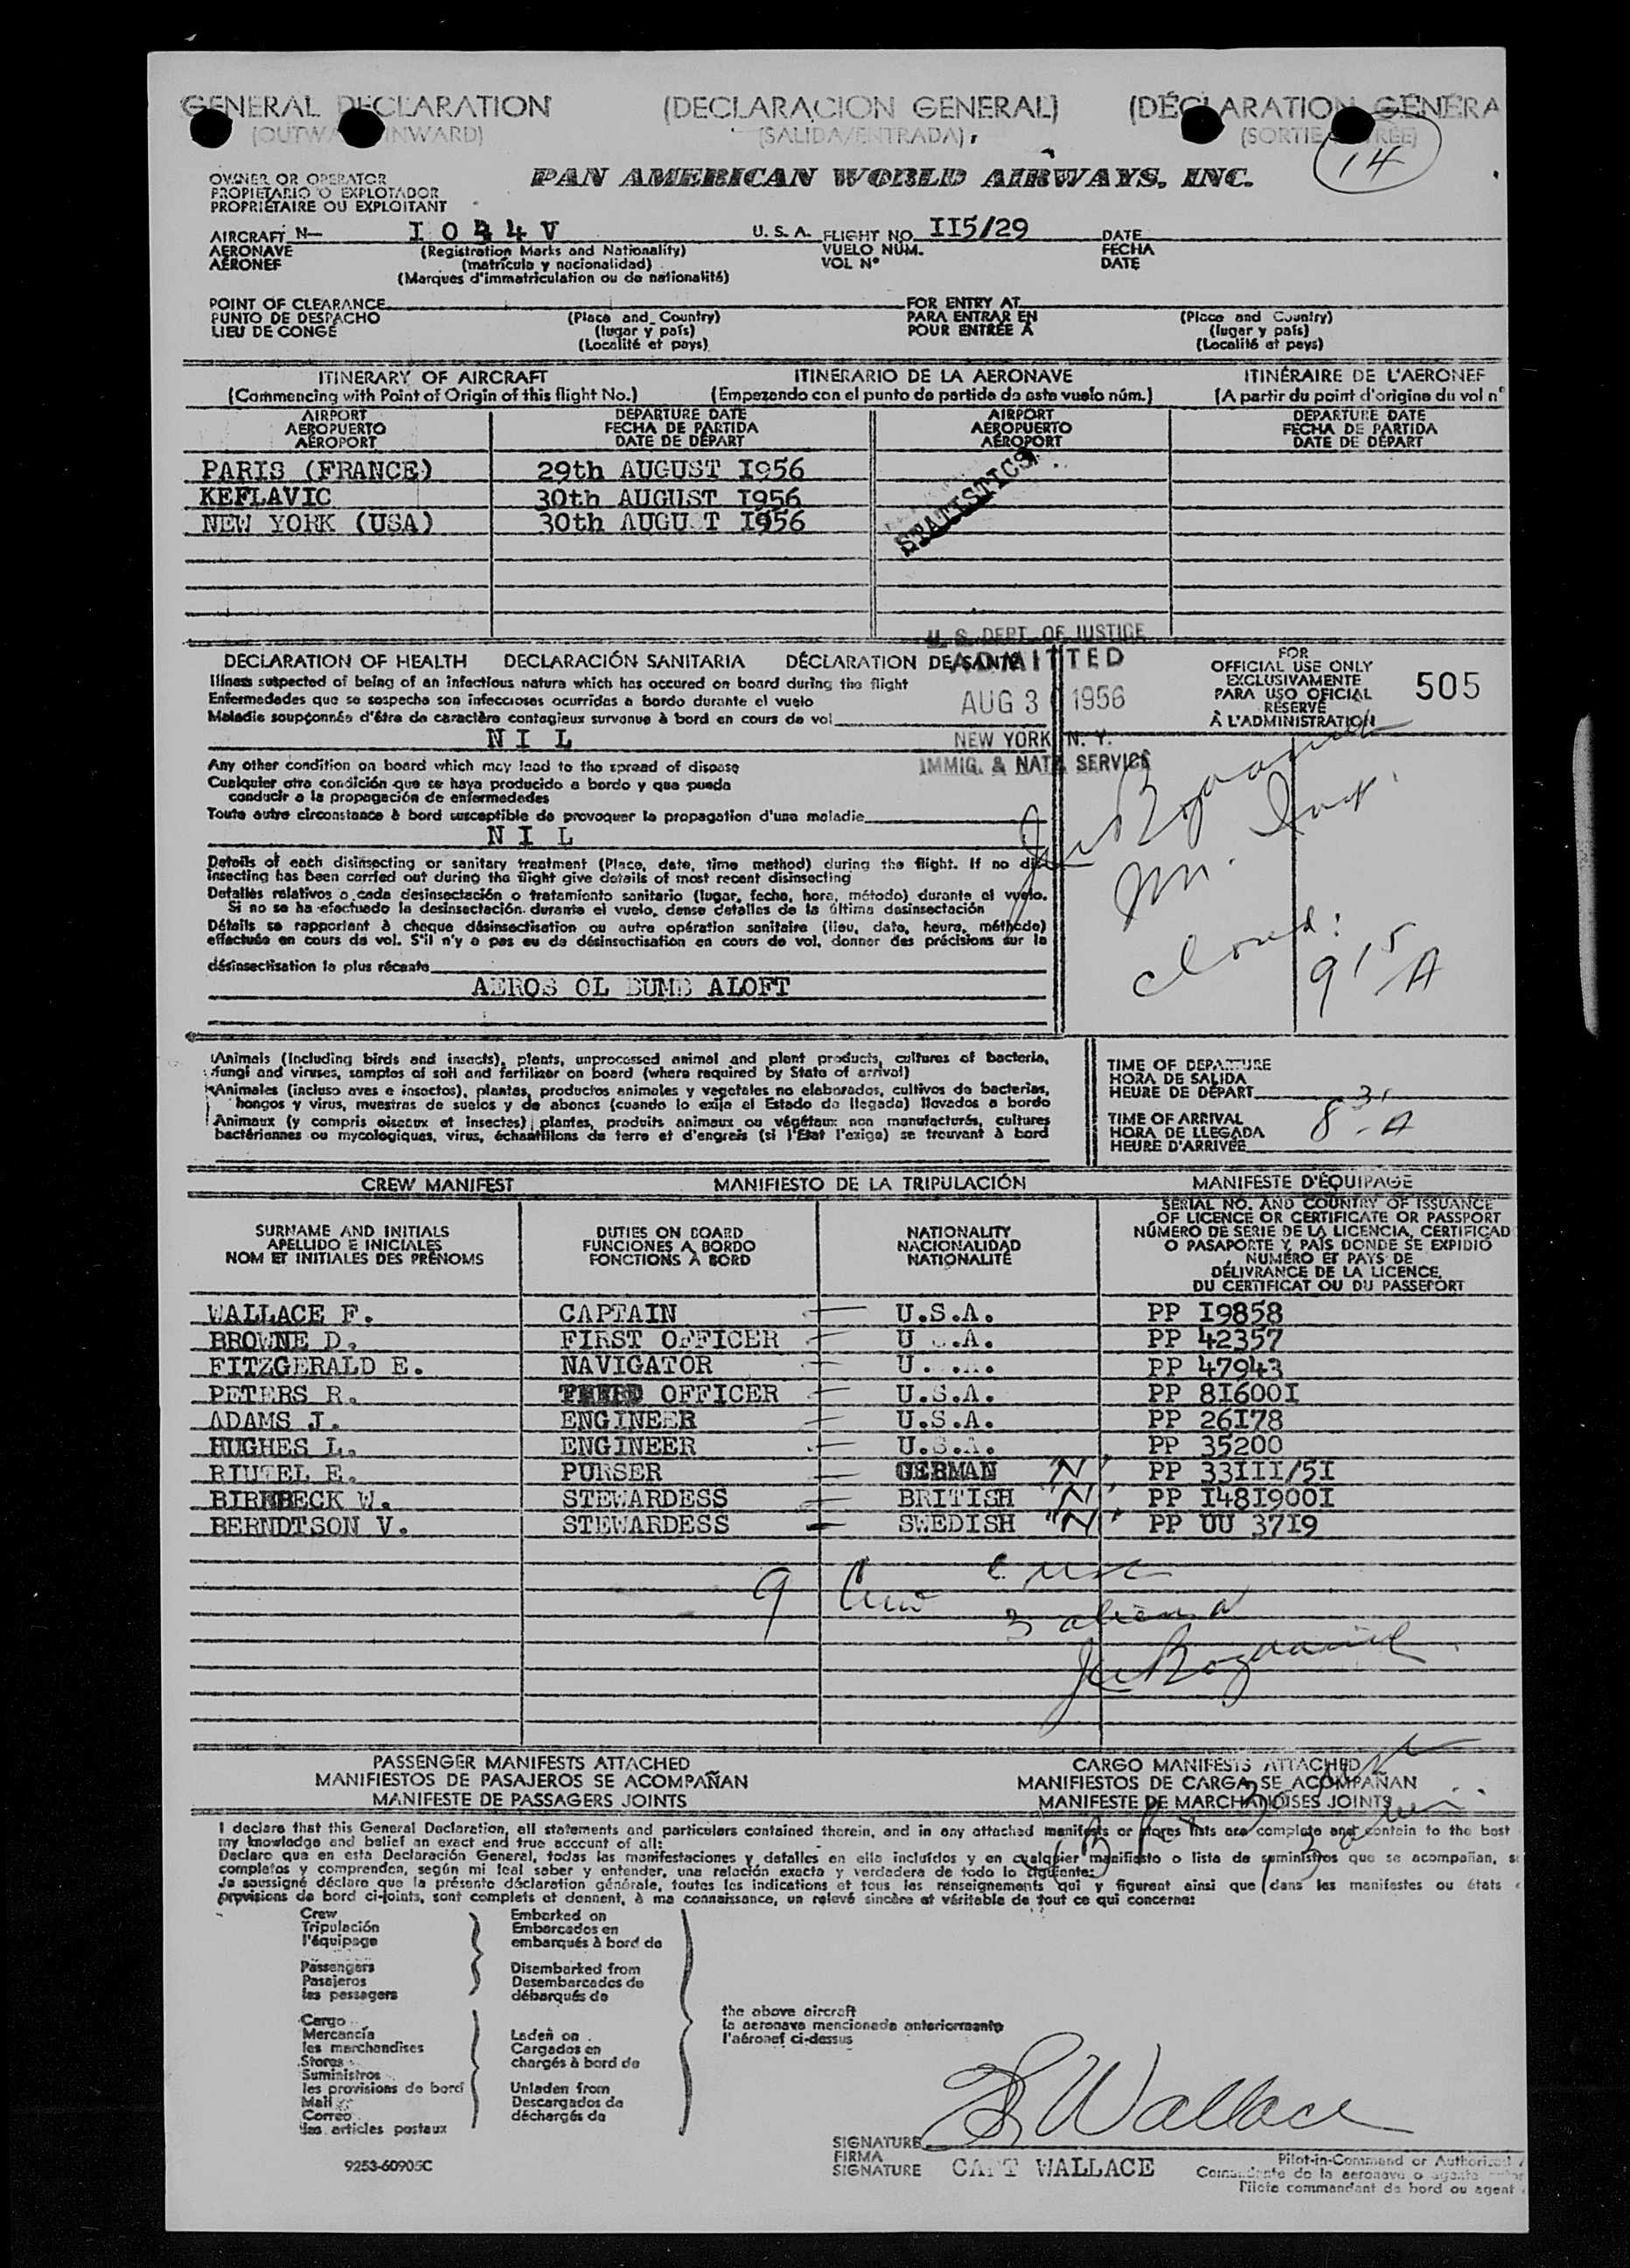 GENERAL DECLARATION (DECLARACION GENERAL) (DÉCLARATION GÉNÉRA
(OUTWA INWARD) (SALIDA/ENTRADA) (SORTIE RÉE)
14
OWNER OR OPERATOR
PROPIETARIO O EXPLOTADOR
PROPRIÉTAIRE OU EXPLOITANT
PAN AMERICAN WORLD AIRWAYS, INC.
AIRCRAFT N— I 0 4 4 V U. S. A. FLIGHT NO. II5/29 DATE
AERONAVE (Registration Marks and Nationality) VUELO NÚM. FECHA
AÉRONEF (matrícula y nacionalidad) VOL N° DATE
(Marques d'immatriculation ou de nationalité)
POINT OF CLEARANCE FOR ENTRY AT
PUNTO DE DESPACHO (Place and Country) PARA ENTRAR EN (Place and Country)
LIEU DE CONGÉ (lugar y país) POUR ENTRÉE A (lugar y país)
(Localité et pays) (Localité et pays)
ITINERARY OF AIRCRAFT ITINERARIO DE LA AERONAVE ITINÉRAIRE DE L'AERONEF
(Commencing with Point of Origin of this flight No.) (Empezando con el punto de partida de este vuelo núm.) (A partir du point d'origine du vol n°
AIRPORT DEPARTURE DATE AIRPORT DEPARTURE DATE
AEROPUERTO FECHA DE PARTIDA AEROPUERTO FECHA DE PARTIDA
AÉROPORT DATE DE DÉPART AÉROPORT DATE DE DÉPART
PARIS (FRANCE) 29th AUGUST I956
KEFLAVIC 30th AUGUST I956
NEW YORK (USA) 30th AUGU T I956
STATISTICS
U. S. DEPT. OF JUSTICE
ADMITTED
AUG 3 1956
NEW YORK, N. Y.
IMMIG. & NATZ. SERVICE
DECLARATION OF HEALTH DECLARACIÓN SANITARIA DÉCLARATION DE SANTÉ
Illness suspected of being of an infectious nature which has occured on board during the flight
Enfermedades que se sospecha son infecciosas ocurridas a bordo durante el vuelo
Maladie soupçonnée d'être de caractère contagieux survenue à bord en cours de vol
N I L
FOR
OFFICIAL USE ONLY
EXCLUSIVAMENTE
PARA USO OFICIAL
RÉSERVÉ
À L'ADMINISTRATION
505
Any other condition on board which may lead to the spread of disease
Cualquier otra condición que se haya producido a bordo y que pueda
conducir a la propagación de enfermedades
Toute autre circonstance à bord susceptible de provoquer la propagation d'une maladie
N I L
Details of each disinsecting or sanitary treatment (Place, date, time method) during the flight. If no dis-
insecting has been carried out during the flight give details of most recent disinsecting
Detalles relativos a cada desinsectación o tratamiento sanitario (lugar, fecha, hora, método) durante el vuelo.
Si no se ha efectuado la desinsectación durante el vuelo, dense detalles de la última desinsectación
Détails se rapportant à chaque désinsectisation ou autre opération sanitaire (lieu, date, heure, méthode)
effectuée en cours de vol. S'il n'y a pas eu de désinsectisation en cours de vol, donner des précisions sur la
désinsectisation la plus récente
AEROS OL BUMB ALOFT
9 15 A
Animals (Including birds and insects), plants, unprocessed animal and plant products, cultures of bacteria,
fungi and viruses, samples of soil and fertilizer on board (where required by State of arrival)
Animales (incluso aves e insectos), plantas, productos animales y vegetales no elaborados, cultivos de bacterias,
hongos y virus, muestras de suelos y de abonos (cuando lo exija el Estado de llegada) llevados a bordo
Animaux (y compris oiseaux et insectes) plantes, produits animaux ou végétaux non manufacturés, cultures
bactériennes ou mycologiques, virus, échantillons de terre et d'engrais (si l'Etat l'exige) se trouvant à bord
TIME OF DEPARTURE
HORA DE SALIDA
HEURE DE DÉPART
TIME OF ARRIVAL
HORA DE LLEGADA
HEURE D'ARRIVÉE
CREW MANIFEST MANIFIESTO DE LA TRIPULACIÓN MANIFESTE D'ÉQUIPAGE
SURNAME AND INITIALS
APELLIDO E INICIALES
NOM ET INITIALES DES PRÉNOMS
DUTIES ON BOARD
FUNCIONES A BORDO
FONCTIONS À BORD
NATIONALITY
NACIONALIDAD
NATIONALITÉ
SERIAL NO. AND COUNTRY OF ISSUANCE
OF LICENCE OR CERTIFICATE OR PASSPORT
NÚMERO DE SERIE DE LA LICENCIA, CERTIFICAD
O PASAPORTE Y PAÍS DONDE SE EXPIDIÓ
NUMÉRO ET PAYS DE
DÉLIVRANCE DE LA LICENCE,
DU CERTIFICAT OU DU PASSEPORT
WALLACE F. CAPTAIN U.S.A. PP I9858
BROWNE D. FIRST OFFICER U .A. PP 42357
FITZGERALD E. NAVIGATOR U. . . PP 47943
PETERS R. THIRD OFFICER U.S.A. PP 8I600I
ADAMS J. ENGINEER U.S.A. PP 26I78
HUGHES L. ENGINEER U.S.A. PP 35200
RIUTEL E. PURSER GERMAN "N" PP 33III/5I
BIRKBECK W. STEWARDESS BRITISH "N" PP I48I900I
BERNDTSON V. STEWARDESS SWEDISH "N" PP UU 37I9
9 Crew 6 usc
3 aliens
PASSENGER MANIFESTS ATTACHED CARGO MANIFESTS ATTACHED
MANIFIESTOS DE PASAJEROS SE ACOMPAÑAN MANIFIESTOS DE CARGA SE ACOMPAÑAN
MANIFESTE DE PASSAGERS JOINTS MANIFESTE DE MARCHANDISES JOINTS
I declare that this General Declaration, all statements and particulars contained therein, and in any attached manifests or stores lists are complete and contain to the best
my knowledge and belief an exact and true account of all:
Declaro que en esta Declaración General, todas las manifestaciones y detalles en ella incluídos y en cualquier manifiesto o lista de suministros que se acompañan, s
completos y comprenden, según mi leal saber y entender, una relación exacta y verdadera de todo lo siguiente:
Je soussigné déclare que la présente déclaration générale, toutes les indications et tous les renseignements qui y figurent ainsi que dans les manifestes ou états
provisions de bord ci-joints, sont complets et donnent, à ma connaissance, un relevé sincère et véritable de tout ce qui concerne:
Crew Embarked on
Tripulación Embarcados en
l'équipage embarqués à bord de
Passengers Disembarked from
Pasajeros Desembarcados de
les passagers débarqués de
the above aircraft
la aeronave mencionada anteriormente
l'aéronef ci-dessus
Cargo
Mercancía Laden on
les marchandises Cargados en
Stores chargés à bord de
Suministros
les provisions de bord Unladen from
Mail Descargados de
Correo déchargés de
les articles postaux
F Wallace
SIGNATURE
FIRMA
SIGNATURE CAPT WALLACE
Pilot-in-Command or Authorized
Comandante de la aeronave o agente
Pilote commandant de bord ou agent
9253-60905C